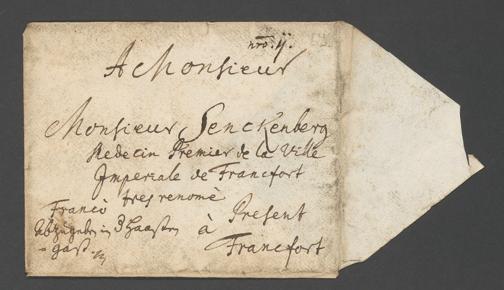 nro. ij.
A Monsieur
Monsieur Senckenberg
Medecin Premier de la Ville
Imperiale de Francfort
tres renomè
Franco à Present
in 3 Haasen
gass. Francfort